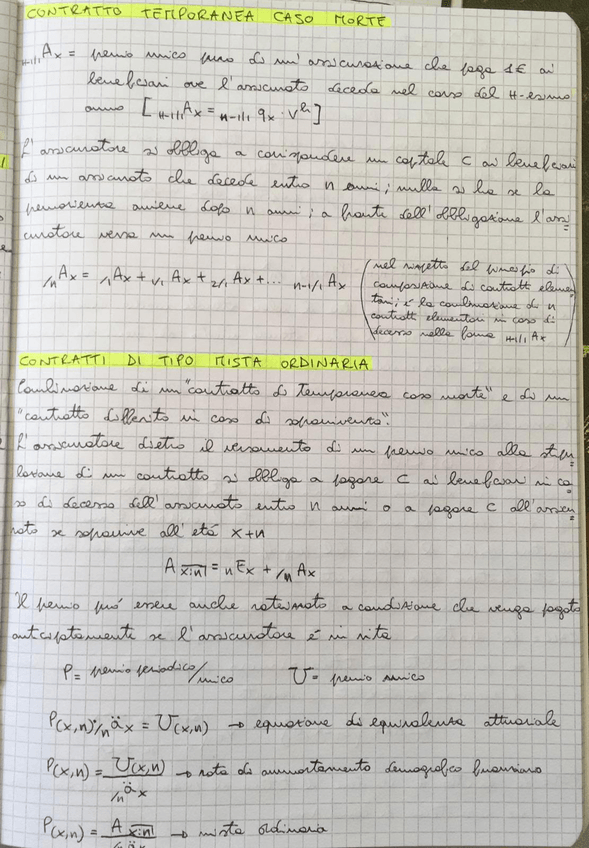 CONTRATTO TEMPORANEA CASO MORTE
H-1/1 Ax = premio unico puro di un'assicurazione che paga 1€ ai
beneficiari ove l'assicurato deceda nel corso del H-esimo
anno [ H-1/1 Ax = H-1/1 qx · v^h ]
L'assicuratore si obbliga a corrispondere un capitale C ai beneficiari
di un assicurato che decede entro n anni; nulla si ha se la
premorienza avviene dopo n anni; a fronte dell'obbligazione l'assi
curatore versa un premio unico
/n Ax = /1 Ax + 1/1 Ax + 2/1 Ax + ... n-1/1 Ax
(nel rispetto del principio di
composizione di contratti elemen
tari; è la combinazione di n
contratti elementari in caso di
decesso nella forma H-1/1 Ax)
CONTRATTI DI TIPO MISTA ORDINARIA
Combinazione di un "contratto di temporanea caso morte" e di un
"contratto differito in caso di sopravvivenza".
L'assicuratore dietro il versamento di un premio unico alla stipu
lazione di un contratto si obbliga a pagare C ai beneficiari in ca
so di decesso dell'assicurato entro n anni o a pagare C all'assicu
rato se sopravvive all'età x+n
A x:n̅| = nEx + /n Ax
Il premio può essere anche rateizzato a condizione che venga pagato
anticipatamente se l'assicuratore è in vita
P = premio periodico/unico U = premio unico
P(x,n) · /n äx = U(x,n) → equazione di equivalenza attuariale
P(x,n) = U(x,n) / /n äx → rata di ammortamento demografico finanziario
P(x,n) = A x:n̅| / /n äx → mista ordinaria